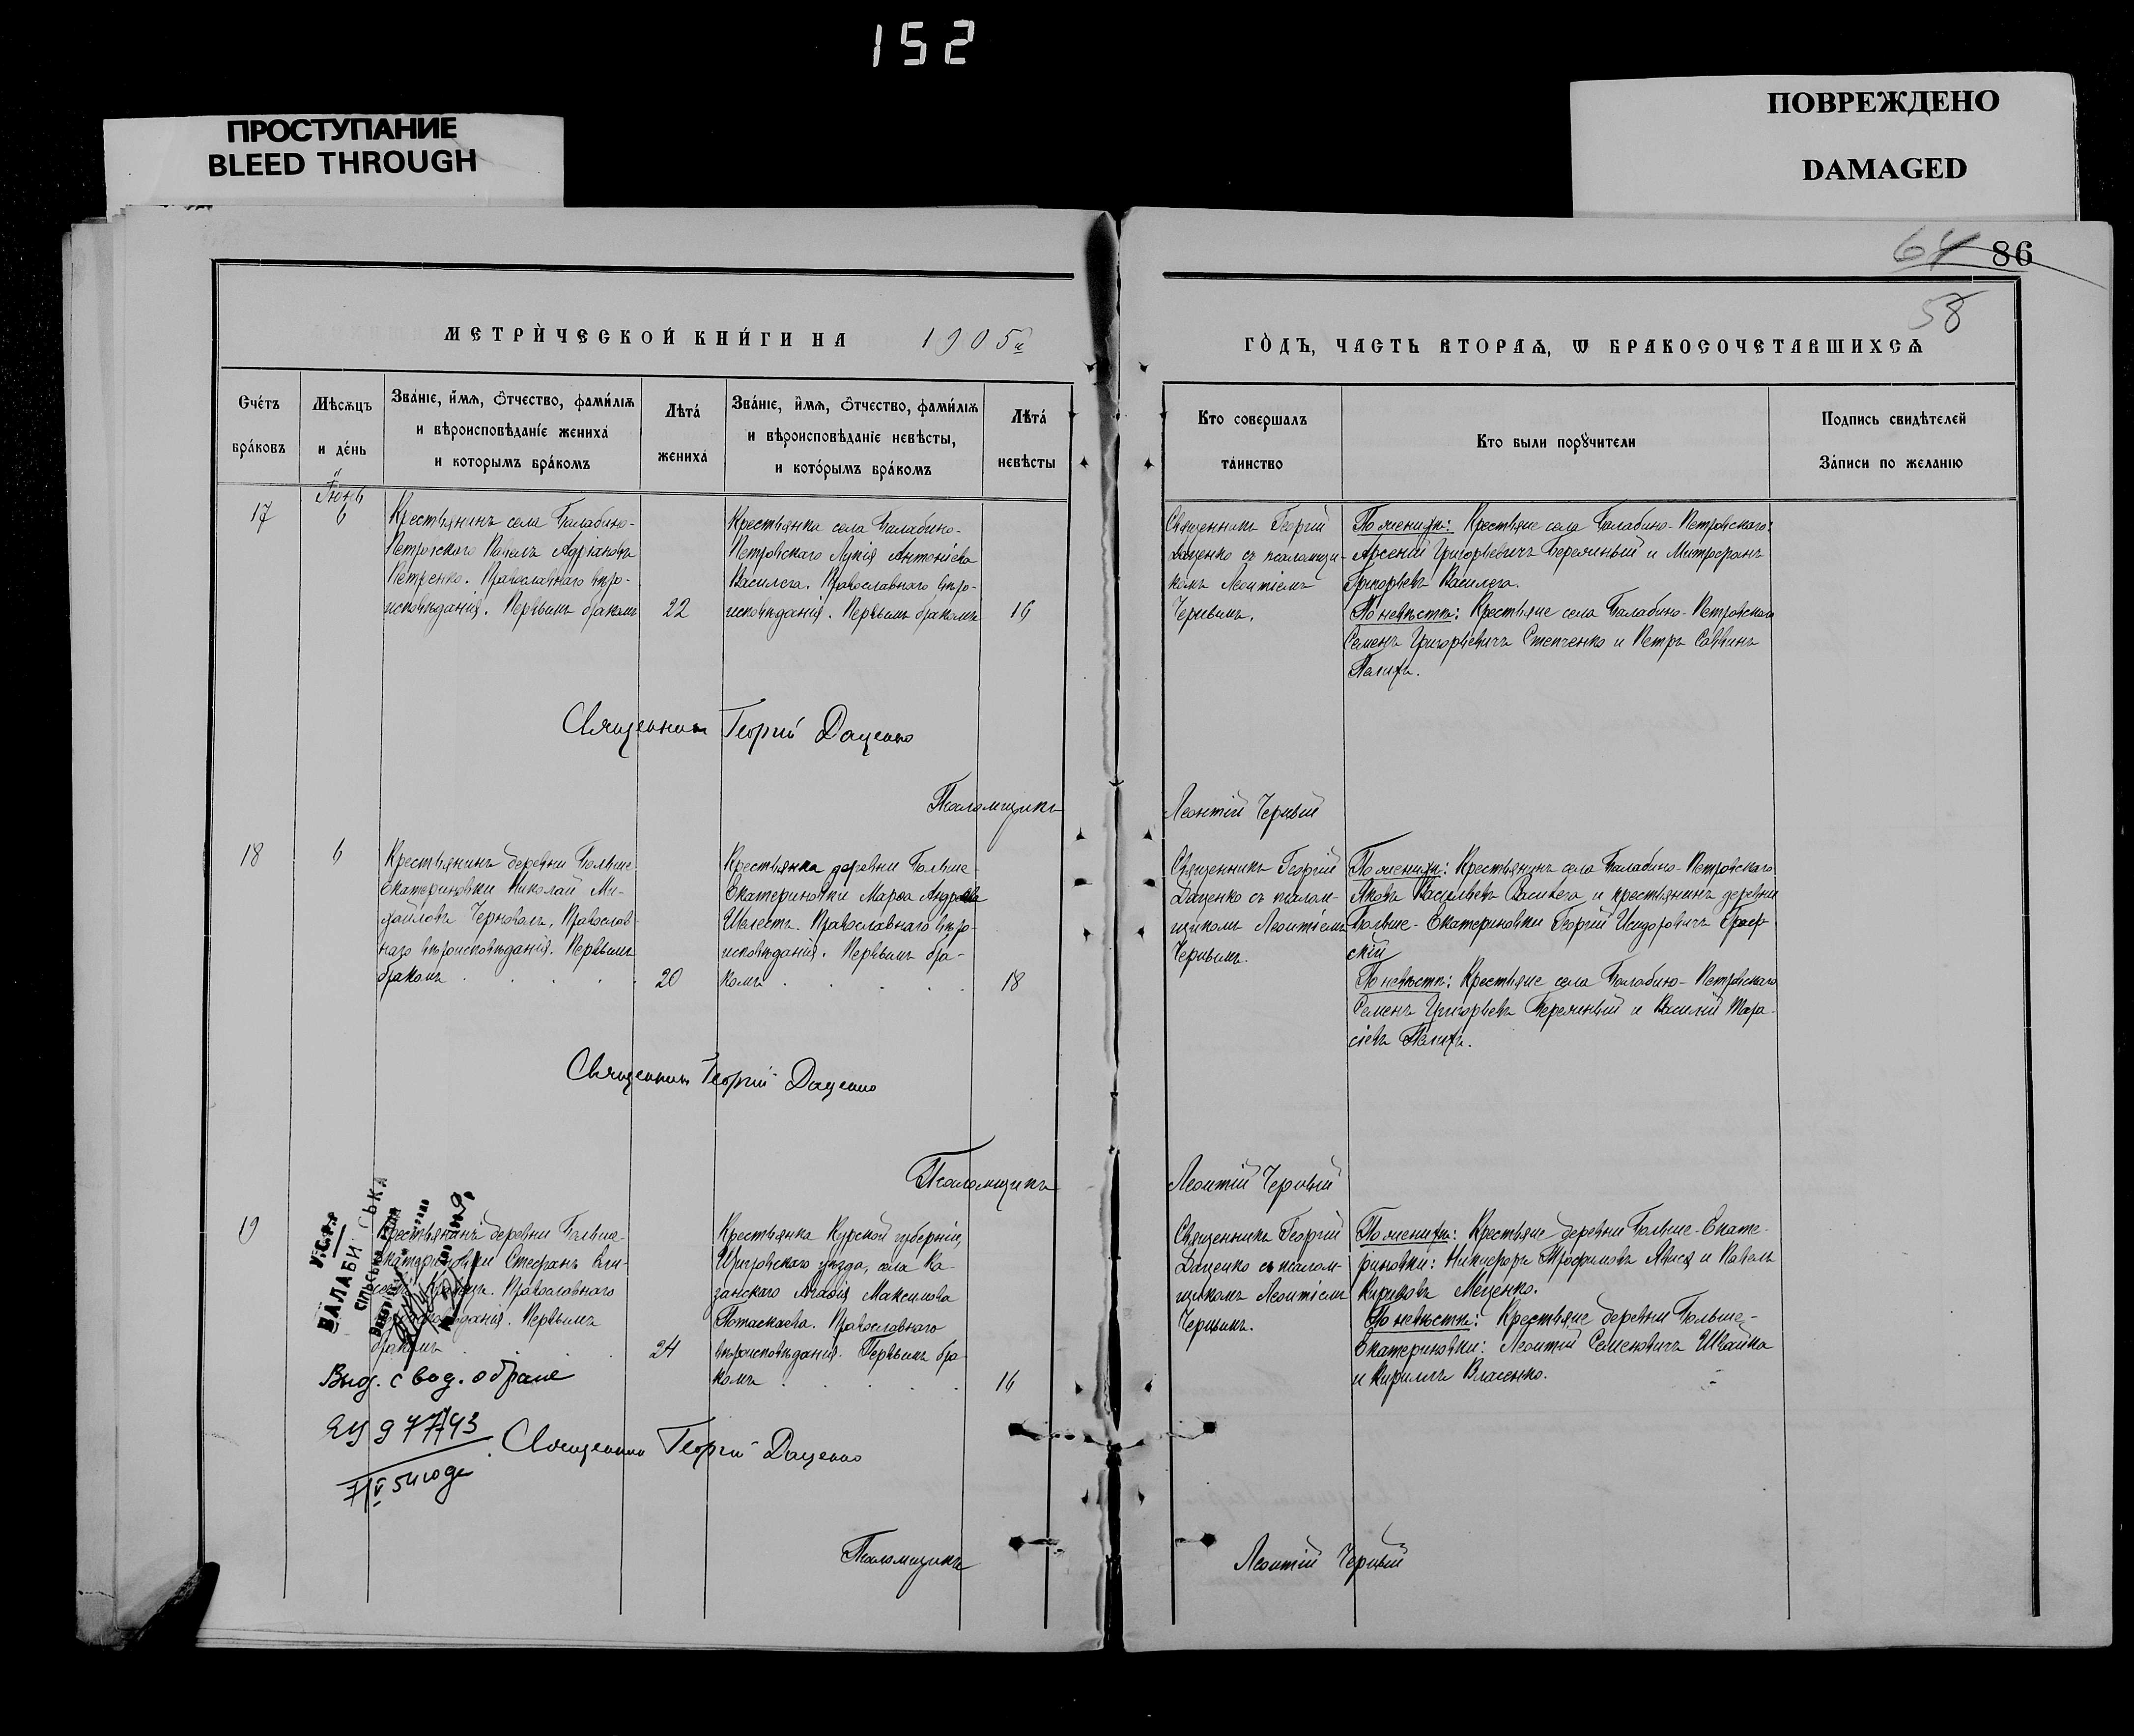 152
ПРОСТУПАНИЕ
BLEED THROUGH
ПОВРЕЖДЕНО
DAMAGED
64 86
58
МЕТРИ́ЧЕСКОЙ КНИ́ГИ НА 1905й
ГО́ДЪ, ЧАСТЬ ВТОРАѦ, Ѡ БРАКОСОЧЕТАВШИХСѦ
Счётъ бра́ковъ
Мѣсѧцъ и де́нь
Зва́нїе, и́мѧ, ѻ҆́тчество, фами́лїѧ
и вѣроисповѣ́данїе жениха́
и которымъ бра́комъ
Лѣта́ жениха́
Зва́нїе, и́мѧ, ѻ҆́тчество, фами́лїѧ
и вѣроисповѣданїе невѣ́сты,
и кото́рымъ бра́комъ
Лѣта́ невѣсты
Кто совершалъ та́инство
Кто были порꙋчители
Подпись свидѣтелей
За́писи по желанїю
17
Іюнь
6
Крестьянинъ села Балабино-
Петровского Павелъ Адріановъ
Петренко. Православнаго вѣро-
исповѣданія. Первымъ бракомъ
22
Крестьянка села Балабино-
Петровскаго Лукія Антоніева
Василега. Православнаго вѣро-
исповѣданія. Первымъ бракомъ
16
Священникъ Георгій
Даценко съ псаломщи-
комъ Леонтіемъ
Чернымъ.
По женихѣ: Крестьяне села Балабино-Петровскаго:
Арсеній Григорьевичъ Бережный и Митрофанъ
Григорьевъ Василега.
По невѣстѣ: Крестьяне села Балабино-Петровскаго
Семенъ Григорьевичъ Степченко и Петръ Саввинъ
Священникъ Георгій Даценко
Псаломщикъ Леонтій Черный
18
6
Крестьянинъ деревни Больше
Екатериновки Николай Ми-
хайловъ Православ-
наго вѣроисповѣданія. Первымъ
бракомъ
20
Крестьянка деревни Больше-
Екатериновки Марѳа Андреева
Шелестъ. Православнаго вѣро-
исповѣданія. Первымъ бра-
комъ
18
Священникъ Георгій
Даценко съ псалом-
щикомъ Леонтіемъ
Чернымъ.
По женихѣ: Крестьянинъ села Балабино-Петровскаго
Яковъ Васильевъ Василега и крестьянинъ деревни
Больше-Екатериновки Георгій Исидоровичъ
скій
По невѣстѣ: Крестьяне села Балабино-Петровскаго
Семенъ Григорьевъ Бережный и Василій Тара-
сіевъ
Священникъ Георгій Даценко
Псаломщикъ Леонтій Черный
19
У.С.Р.Р
Крестьянинъ деревни Больше
Екатериновки Стефанъ
Православнаго
Первымъ
бракомъ
24
Крестьянка Курской губерніи,
Щигровскаго уѣзда, села Ка-
занскаго Агаѳія Максимова
Потаскаева. Православнаго
вѣроисповѣданія. Первымъ бра-
комъ
16
Священникъ Георгій
Даценко съ псалом-
щикомъ Леонтіемъ
Чернымъ.
По женихѣ: Крестьяне деревни Больше-Екате-
риновки: Никифоръ Трофимовъ и Павелъ
Кириковъ Меценко.
По невѣстѣ: Крестьяне деревни Больше-
Екатериновки: Леонтій Семеновичъ Швайка
и Кириллъ Власенко.
Выд. свод. о браке
977743
54 года
Священникъ Георгій Даценко
Псаломщикъ Леонтій Черный